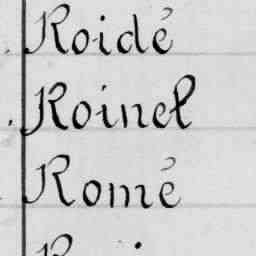 Roidé
Roinel
Romé